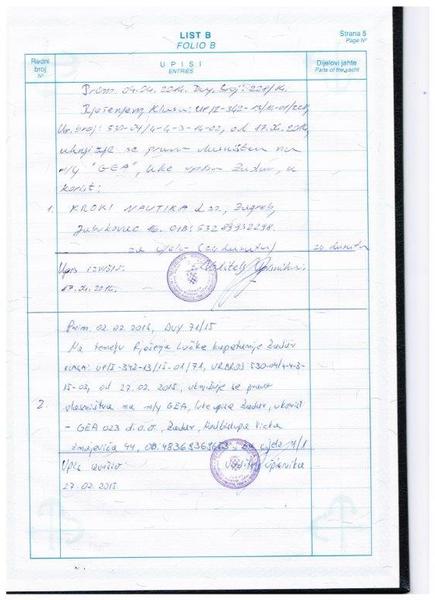 LIST B
FOLIO B
Strana 5
Page Nº
Redni broj
Nº
UPISI
ENTRIES
Dijelovi jahte
Parts of the yacht
Prim. 04.04.2014. Duy. broj: 228/14.
Rješenjem, Klasa: UP/I-342-
Ur. broj: 530-04/4-4-3-14-02, od 17.04.2014.
uknjižuje se pravo vlasništva na
m/y "GEA", luke upisa Zadar, u
korist:
1. KROKI NAUTIKA d.o.o., Zagreb,
Jabukovac
za cijelo
Upis izvršio: Voditelj Upisnika:
17.04.2014.
Prim. 02.02.2015, DUY 71/15
Na temelju Rješenja Lučke kapetanije Zadar
KLASA: UP/I-342-13/15-01/71, URBROJ 530-04/4-4-3-
15-02, od 27.02.2015, uknjižuje se pravo
2. vlasništva na m/y GEA, luke upisa Zadar, u korist
- GEA 023 d.o.o., Zadar, Nadbiskupa Vicka
Zmajevića 44, za cijelo 1/1
Upis izvršio Voditelj Upisnika
27.02.2015